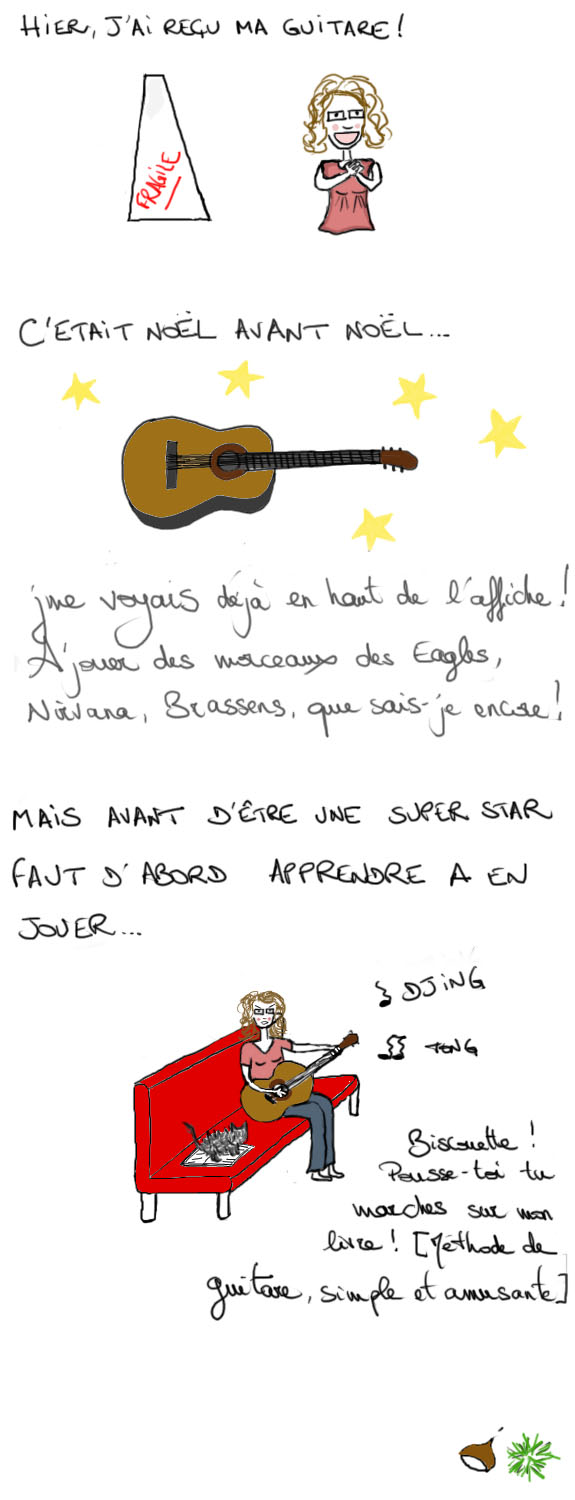 HIER, J'AI REÇU MA GUITARE !
FRAGILE
C'ETAIT NOËL AVANT NOËL...
j'me voyais déjà en haut de l'affiche !
A jouer des morceaux des Eagles,
Nirvana, Brassens, que sais-je encore !
MAIS AVANT D'ÊTRE UNE SUPER STAR
FAUT D'ABORD APPRENDRE A EN
JOUER...
DJING
TONG
Biscouette !
Pousse-toi tu
marches sur mon
livre ! [Méthode de
guitare, simple et amusante]